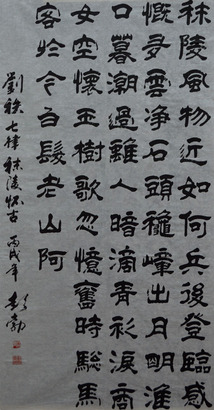 秣陵風物近如何兵後登臨感
慨多雲净石頭穐嶂出月明淮
口暮潮過離人暗滴青衫淚商
女空懷玉樹歌忽憶舊時驄馬
客於今白髮老山阿
劉秩七律秣陵怀古丙戌年彭